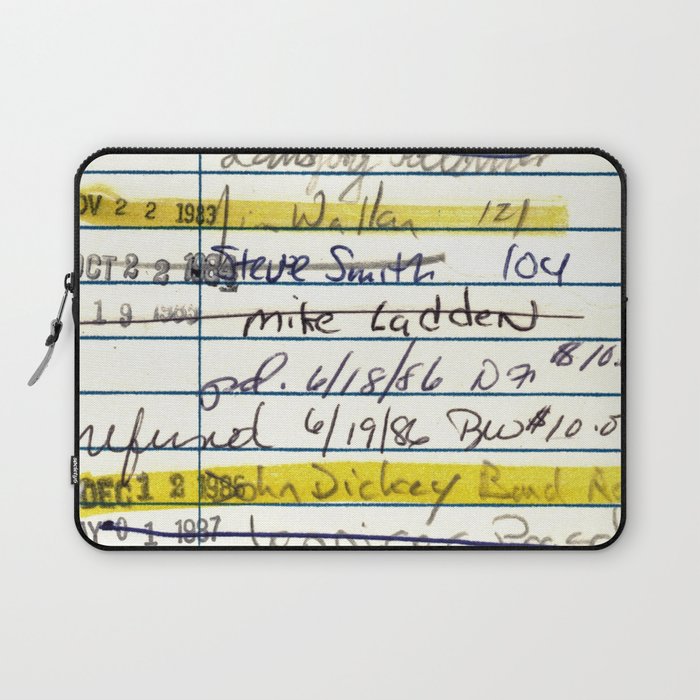 OV 2 2 1983 Jim Wallan 121
OCT 2 2 1984 Steve Smith 104
19 1985 Mike Ladden
pd. 6/18/86 $10.
refund 6/19/86 BW $10.0
DEC 1 2 1986 John Dickey Band
Y 0 1 1987
society6